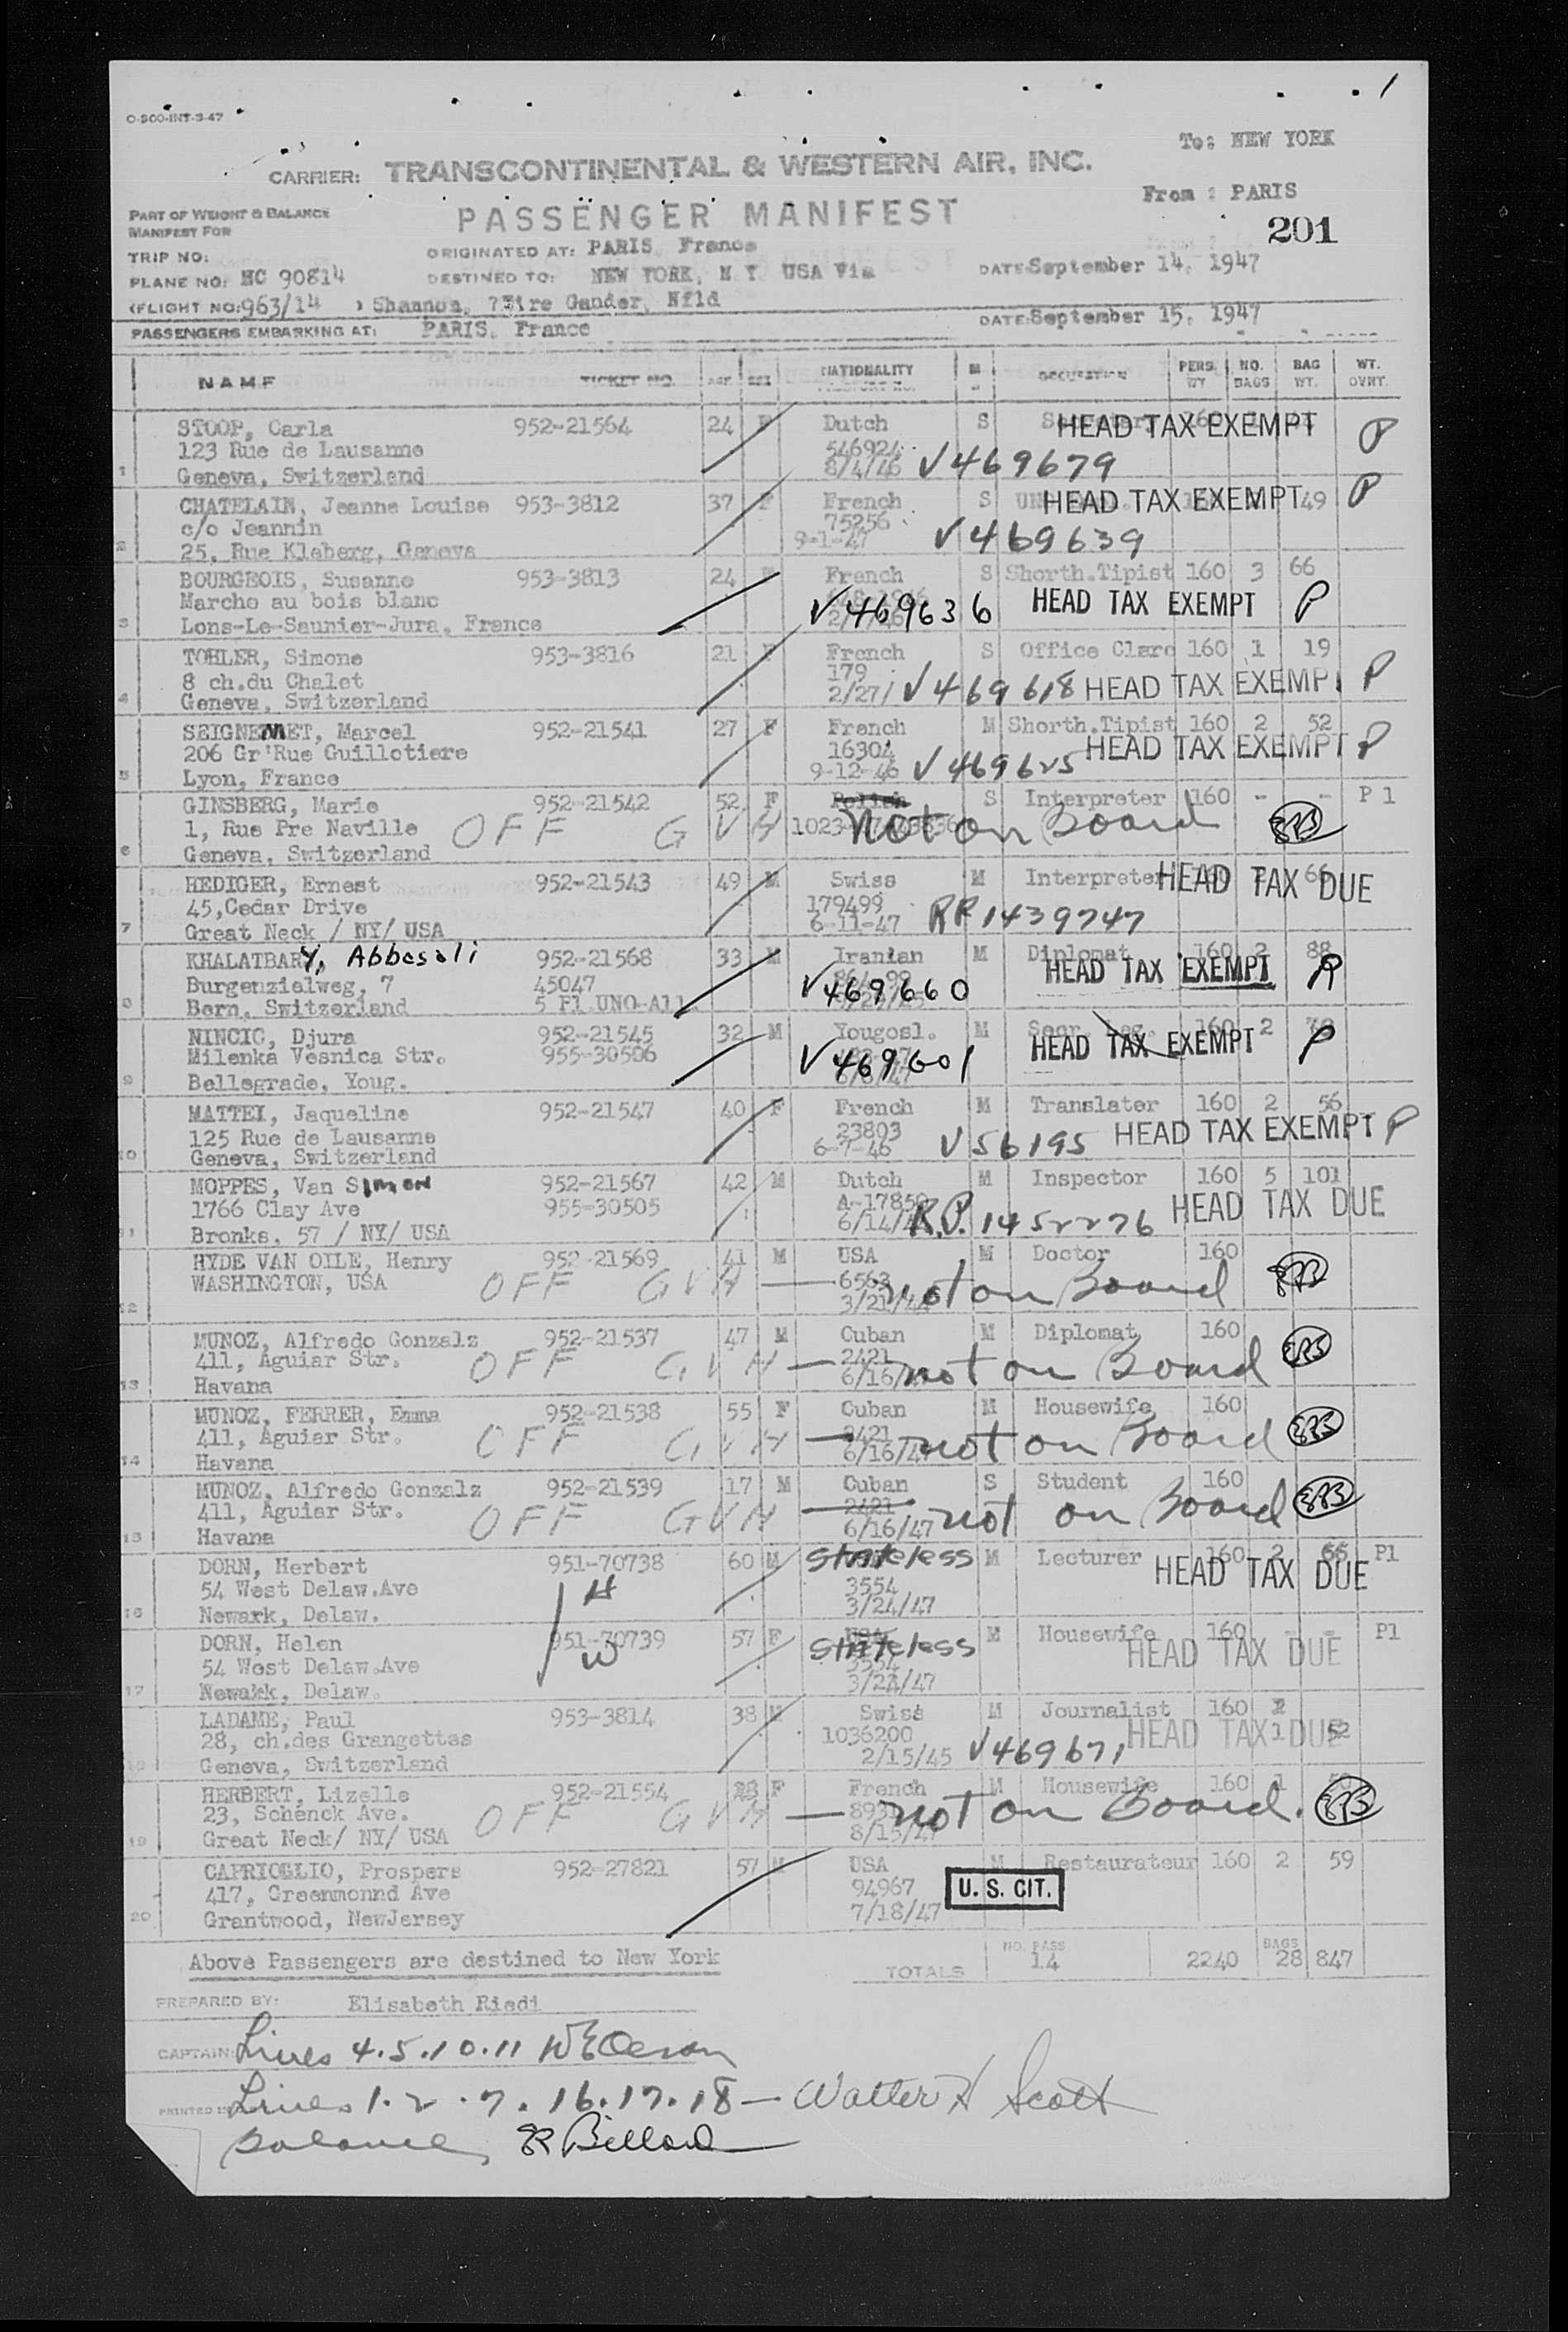 1
O-900-INT-3-47
To: NEW YORK
CARRIER: TRANSCONTINENTAL & WESTERN AIR, INC.
From : PARIS
PART OF WEIGHT & BALANCE
MANIFEST FOR
PASSENGER MANIFEST
201
TRIP NO:
ORIGINATED AT: PARIS France
PLANE NO: NC 90814
DESTINED TO: NEW YORK, N Y USA Via
DATE: September 14, 1947
(FLIGHT NO: 963/14 ) Shannon, Eire Gander, Nfld
PASSENGERS EMBARKING AT: PARIS, France
DATE: September 15, 1947
NAME TICKET NO. AGE SEX NATIONALITY M OCCUPATION PERS. WT NO. BAGS BAG WT. WT. OVHT.
STOOP, Carla 952-21564 24 F Dutch S HEAD TAX EXEMPT P
123 Rue de Lausanne 546924
1 Geneva, Switzerland 8/4/46 V469679
CHATELAIN, Jeanne Louise 953-3812 37 F French S HEAD TAX EXEMPT 49 P
c/o Jeannin 75256
2 25, Rue Kleberg, Geneva 9-1-47 V469639
BOURGEOIS, Susanne 953-3813 24 French S Shorth.Tipist 160 3 66
Marche au bois blanc V469636 HEAD TAX EXEMPT P
3 Lons-Le-Saunier-Jura, France
TOHLER, Simone 953-3816 21 F French S Office Clerc 160 1 19
8 ch.du Chalet 179
4 Geneva, Switzerland 2/27/ V469618 HEAD TAX EXEMPT P
SEIGNEMET, Marcel 952-21541 27 F French M Shorth.Tipist 160 2 52
206 Gr'Rue Guillotiere 16304 HEAD TAX EXEMPT P
5 Lyon, France 9-12-46 V469625
GINSBERG, Marie 952-21542 52 F Polish S Interpreter 160 - - P 1
1, Rue Pre Naville OFF GVH not on Board
6 Geneva, Switzerland
HEDIGER, Ernest 952-21543 49 M Swiss M Interpreter HEAD TAX DUE
45,Cedar Drive 179499
7 Great Neck / NY/ USA 6-11-47 RP 1439747
KHALATBARY, Abbasali 952-21568 33 M Iranian M Diplomat 160 2 88
Burgenzielweg, 7 45047 V469660 HEAD TAX EXEMPT P
8 Bern, Switzerland 5 Pl UNO-All
NINCIC, Djura 952-21545 32 M Yougosl. M 160 2
Milenka Vesnica Str. 955-30506 V469601 HEAD TAX EXEMPT P
9 Bellegrade, Youg.
MATTEI, Jaqueline 952-21547 40 F French M Translater 160 2 56
125 Rue de Lausanne 23803 HEAD TAX EXEMPT P
10 Geneva, Switzerland 6-7-46 V56195
MOPPES, Van Simon 952-21567 42 M Dutch M Inspector 160 5 101
1766 Clay Ave 955-30505 A-17850 HEAD TAX DUE
11 Bronks, 57 / NY/ USA 6/14/ R.P. 1452276
HYDE VAN OILE, Henry 952-21569 41 M USA M Doctor 160
WASHINGTON, USA OFF GVH 6563 not on Board
12 3/21/4
MUNOZ, Alfredo Gonzalz 952-21537 47 M Cuban M Diplomat 160
411, Aguiar Str. OFF GVH 2421 not on Board
13 Havana 6/16/
MUNOZ, FERRER, Emma 952-21538 55 F Cuban M Housewife 160
411, Aguiar Str. OFF GVH 2421 not on Board
14 Havana 6/16/47
MUNOZ, Alfredo Gonzalz 952-21539 17 M Cuban S Student 160
411, Aguiar Str. OFF GVH 2421 not on Board
15 Havana 6/16/47
DORN, Herbert 951-70738 60 M Stateless M Lecturer 160 2 66 P1
54 West Delaw.Ave H 3554 HEAD TAX DUE
16 Newark, Delaw. 3/24/47
DORN, Helen 951-70739 57 F Stateless M Housewife 160 - - P1
54 West Delaw.Ave W 3554 HEAD TAX DUE
17 Newakk, Delaw. 3/24/47
LADAME, Paul 953-3814 38 M Swiss M Journalist 160
28, ch.des Grangettes 1036200 HEAD TAX DUE 1 52
18 Geneva, Switzerland 2/15/45 V469671
HERBERT, Lizelle 952-21554 28 F French M Housewife 160 1
23, Schenck Ave. OFF GVH not on Board.
19 Great Neck/ NY/ USA 8/15/47
CAPRIOGLIO, Prospers 952-27821 57 M USA M Restaurateur 160 2 59
417, Greenmonnd Ave 94967 U. S. CIT.
20 Grantwood, NewJersey 7/18/47
Above Passengers are destined to New York
TOTALS NO. PASS. 14 2240 BAGS 28 847
PREPARED BY: Elisabeth Riedi
CAPTAIN: Lines 4.5.10.11
PRINTED IN Lines 1.2.7.16.17.18 — Walter H Scott
Balance